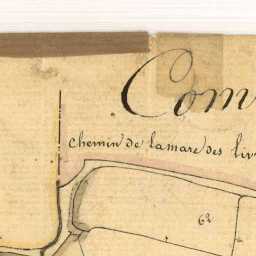 Com
chemin de lamare des liv
62